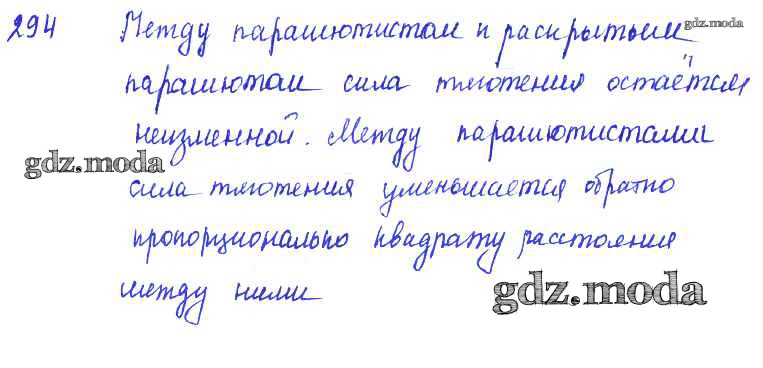 294 Между парашютистом и раскрытым gdz.moda
парашютом сила тяготения остаётся
неизменной. Между парашютистами
gdz.moda
сила тяготения уменьшается обратно
пропорционально квадрату расстояния
между ними
gdz.moda